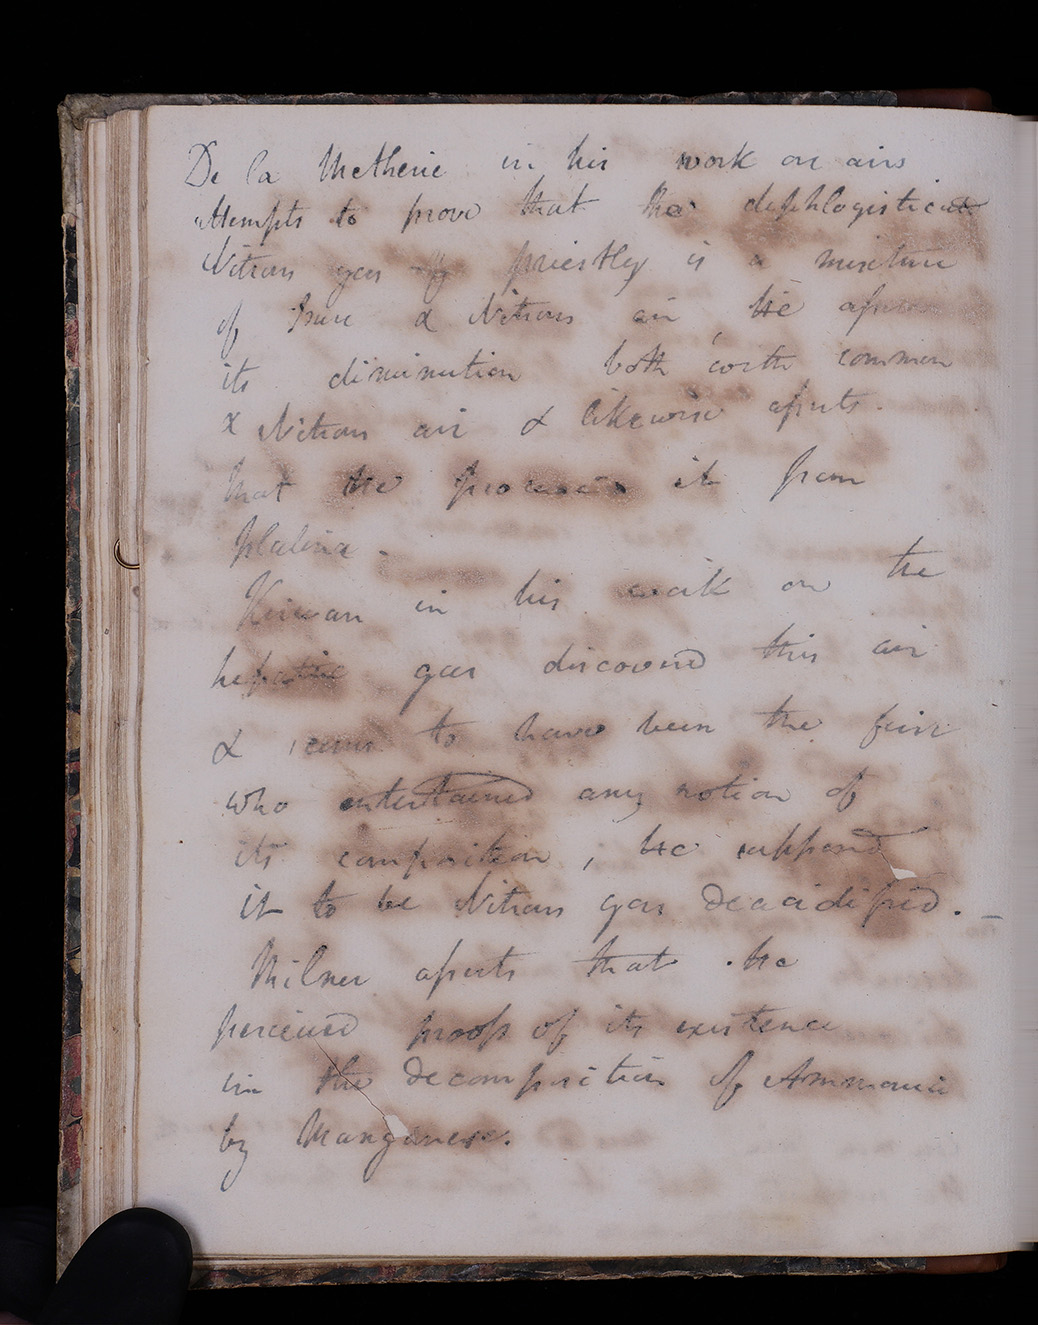 De la Metherie in his work on airs
attempts to prove that the dephlogisticat
Nitrous gas of Priestley is a mixture
of Pure & Nitrous air, he asserts
its diminution both with common
& Nitrous air & likewise asserts.
that he procured it from
platina.
Kirwan in his work on the
hepatic gas discovered this air
& seems to have been the first
who entertained any notion of
its composition, he supposed
it to be Nitrous gas deacidified.
Milner asserts that he
perceived proofs of its existence
in the decomposition of Ammonia
by Manganese.